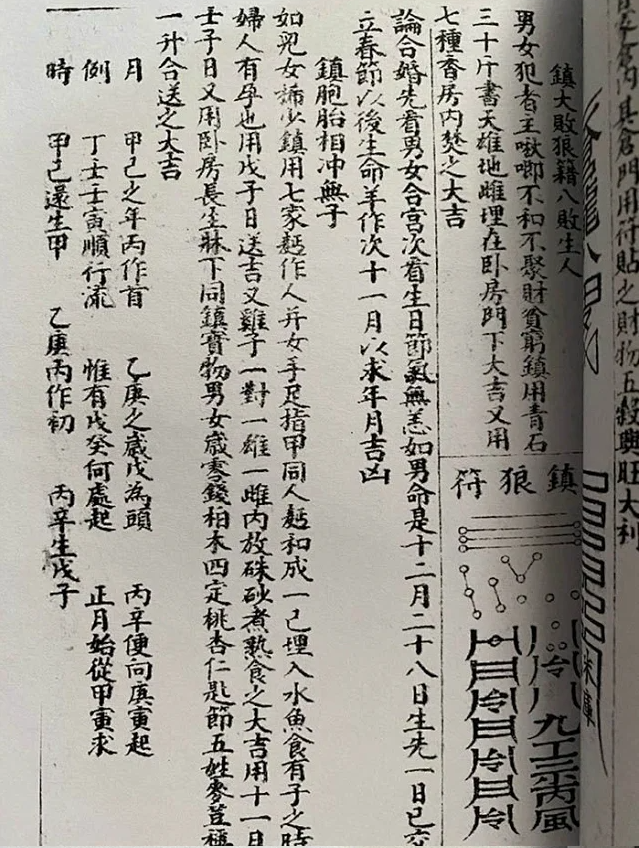 其倉門用符貼之財物五穀興旺大利
米庫
鎮大敗狼籍八敗生人
男女犯者主啾唧不和不聚財貧窮鎮用青石
三十斤書天雄地雌埋在卧房門下大吉又用
七種香房内焚之大吉
鎮狼符
九工
丙風
論合婚先看男女合宫次看生日節氣無恙如男命是十二月二十八日生先一日已交
立春節以後生命羊作次十一月以求年月吉凶
鎮胞胎相冲無子
如兒女稀少鎮用七家麪作人并女手足指甲同人麪和成一己埋入水魚食有子之時
婦人有孕也用戊子日送吉又雞子一對一雄一雌内放硃砂煮熟食之大吉用十一月
壬子日又用卧房長生牀下同鎮寶物男女歲零錢柏木四定桃杏仁匙節五姓麥荳種
一升合送之大吉
月 甲己之年丙作首 乙庚之歲戊為頭 丙辛便向庚寅起
例 丁壬壬寅順行流 惟有戊癸何處起 正月始從甲寅求
時 甲己還生甲 乙庚丙作初 丙辛生戊子